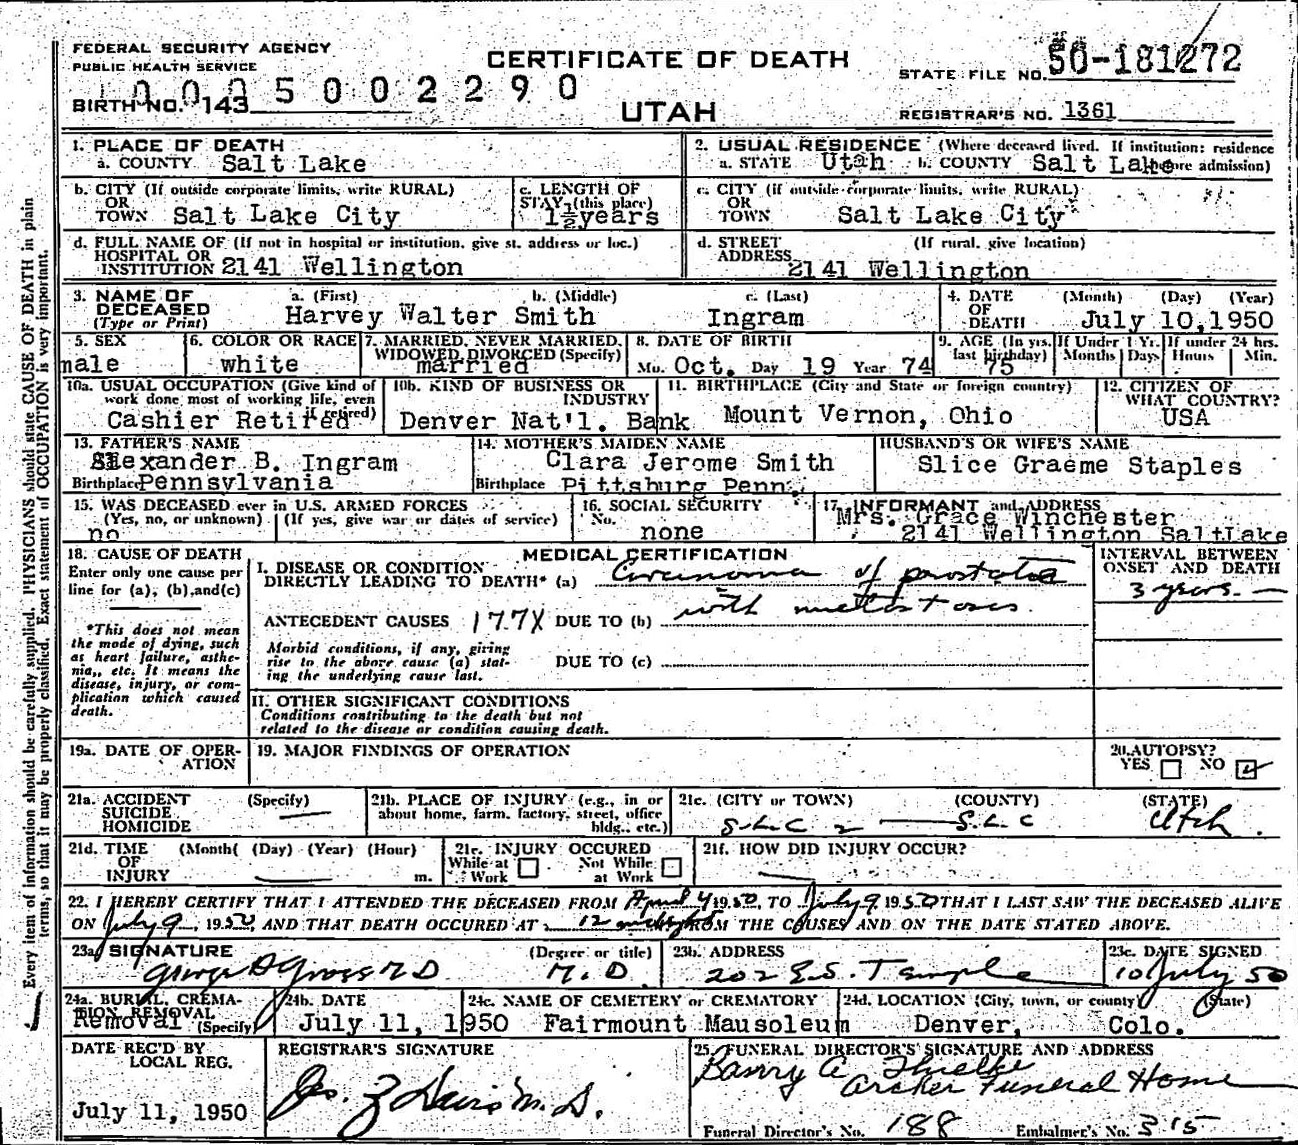 FEDERAL SECURITY AGENCY
PUBLIC HEALTH SERVICE
CERTIFICATE OF DEATH
STATE FILE NO. 50-181272
BIRTH NO. 143
5 0 0 2 2 9 0
UTAH
REGISTRAR'S NO. 1361
1. PLACE OF DEATH
a. COUNTY Salt Lake
2. USUAL RESIDENCE (Where deceased lived. If institution: residence
a. STATE Utah b. COUNTY Salt Lake before admission)
b. CITY (If outside corporate limits, write RURAL)
OR
TOWN Salt Lake City
c. LENGTH OF
STAY (this place)
1½years
c. CITY (if outside corporate limits, write RURAL)
OR
TOWN Salt Lake City
d. FULL NAME OF (If not in hospital or institution, give st. address or loc.)
HOSPITAL OR
INSTITUTION 2141 Wellington
d. STREET (If rural, give location)
ADDRESS 2141 Wellington
3. NAME OF DECEASED
(Type or Print)
a. (First) b. (Middle) c. (Last)
Harvey Walter Smith Ingram
4. DATE OF DEATH (Month) (Day) (Year)
July 10,1950
5. SEX
male
6. COLOR OR RACE
white
7. MARRIED, NEVER MARRIED,
WIDOWED, DIVORCED (Specify)
married
8. DATE OF BIRTH
Mo. Oct. Day 19 Year 74
9. AGE (In yrs. last birthday)
75
If Under 1 Yr. Months Days
If under 24 hrs. Hours Min.
10a. USUAL OCCUPATION (Give kind of
work done most of working life, even
if retired)
Cashier Retired
10b. KIND OF BUSINESS OR
INDUSTRY
Denver Nat'l. Bank
11. BIRTHPLACE (City and State or foreign country)
Mount Vernon, Ohio
12. CITIZEN OF
WHAT COUNTRY?
USA
13. FATHER'S NAME
Alexander B. Ingram
Birthplace Pennsylvania
14. MOTHER'S MAIDEN NAME
Clara Jerome Smith
Birthplace Pittsburg Penn.
HUSBAND'S OR WIFE'S NAME
Slice Graeme Staples
15. WAS DECEASED ever in U.S. ARMED FORCES
(Yes, no, or unknown) (If yes, give war or dates of service)
no
16. SOCIAL SECURITY
No. none
17. INFORMANT and ADDRESS
Mrs. Grace Winchester
2141 Wellington SaltLake
18. CAUSE OF DEATH
Enter only one cause per
line for (a), (b),and(c)
*This does not mean
the mode of dying, such
as heart failure, asthe-
nia,, etc. It means the
disease, injury, or com-
plication which caused
death.
MEDICAL CERTIFICATION
I. DISEASE OR CONDITION
DIRECTLY LEADING TO DEATH* (a) Carcinoma of prostate
ANTECEDENT CAUSES 177X DUE TO (b) with metastases.
Morbid conditions, if any, giving
rise to the above cause (a) stat-
ing the underlying cause last.
DUE TO (c)
INTERVAL BETWEEN
ONSET AND DEATH
3 years.
II. OTHER SIGNIFICANT CONDITIONS
Conditions contributing to the death but not
related to the disease or condition causing death.
19a. DATE OF OPER-
ATION
19. MAJOR FINDINGS OF OPERATION
20. AUTOPSY?
YES NO
21a. ACCIDENT (Specify)
SUICIDE
HOMICIDE
21b. PLACE OF INJURY (e.g., in or
about home, farm, factory, street, office
bldg., etc.)
21c. (CITY or TOWN) (COUNTY) (STATE)
S.L.C 2 S.L.C Utah.
21d. TIME (Month( (Day) (Year) (Hour)
OF
INJURY m.
21e. INJURY OCCURED
While at Work Not While at Work
21f. HOW DID INJURY OCCUR?
22. I HEREBY CERTIFY THAT I ATTENDED THE DECEASED FROM April 4, 1950, TO July 9 1950 THAT I LAST SAW THE DECEASED ALIVE
ON July 9, 1950, AND THAT DEATH OCCURED AT 12 midnight FROM THE CAUSES AND ON THE DATE STATED ABOVE.
23a. SIGNATURE (Degree or title)
M.D.
23b. ADDRESS
202 E.S. Temple
23c. DATE SIGNED
10 July 50
24a. BURIAL, CREMA-
TION REMOVAL
Removal (Specify)
24b. DATE
July 11, 1950
24c. NAME OF CEMETERY or CREMATORY
Fairmount Mausoleum
24d. LOCATION (City, town, or county) (State)
Denver, Colo.
DATE REC'D BY
LOCAL REG.
July 11, 1950
REGISTRAR'S SIGNATURE
25. FUNERAL DIRECTOR'S SIGNATURE AND ADDRESS
Archer Funeral Home
Funeral Director's No. 188 Embalmer's No. 315
Every item of information should be carefully supplied. PHYSICIANS should state CAUSE OF DEATH in plain
terms, so that it may be properly classified. Exact statement of OCCUPATION is very important.